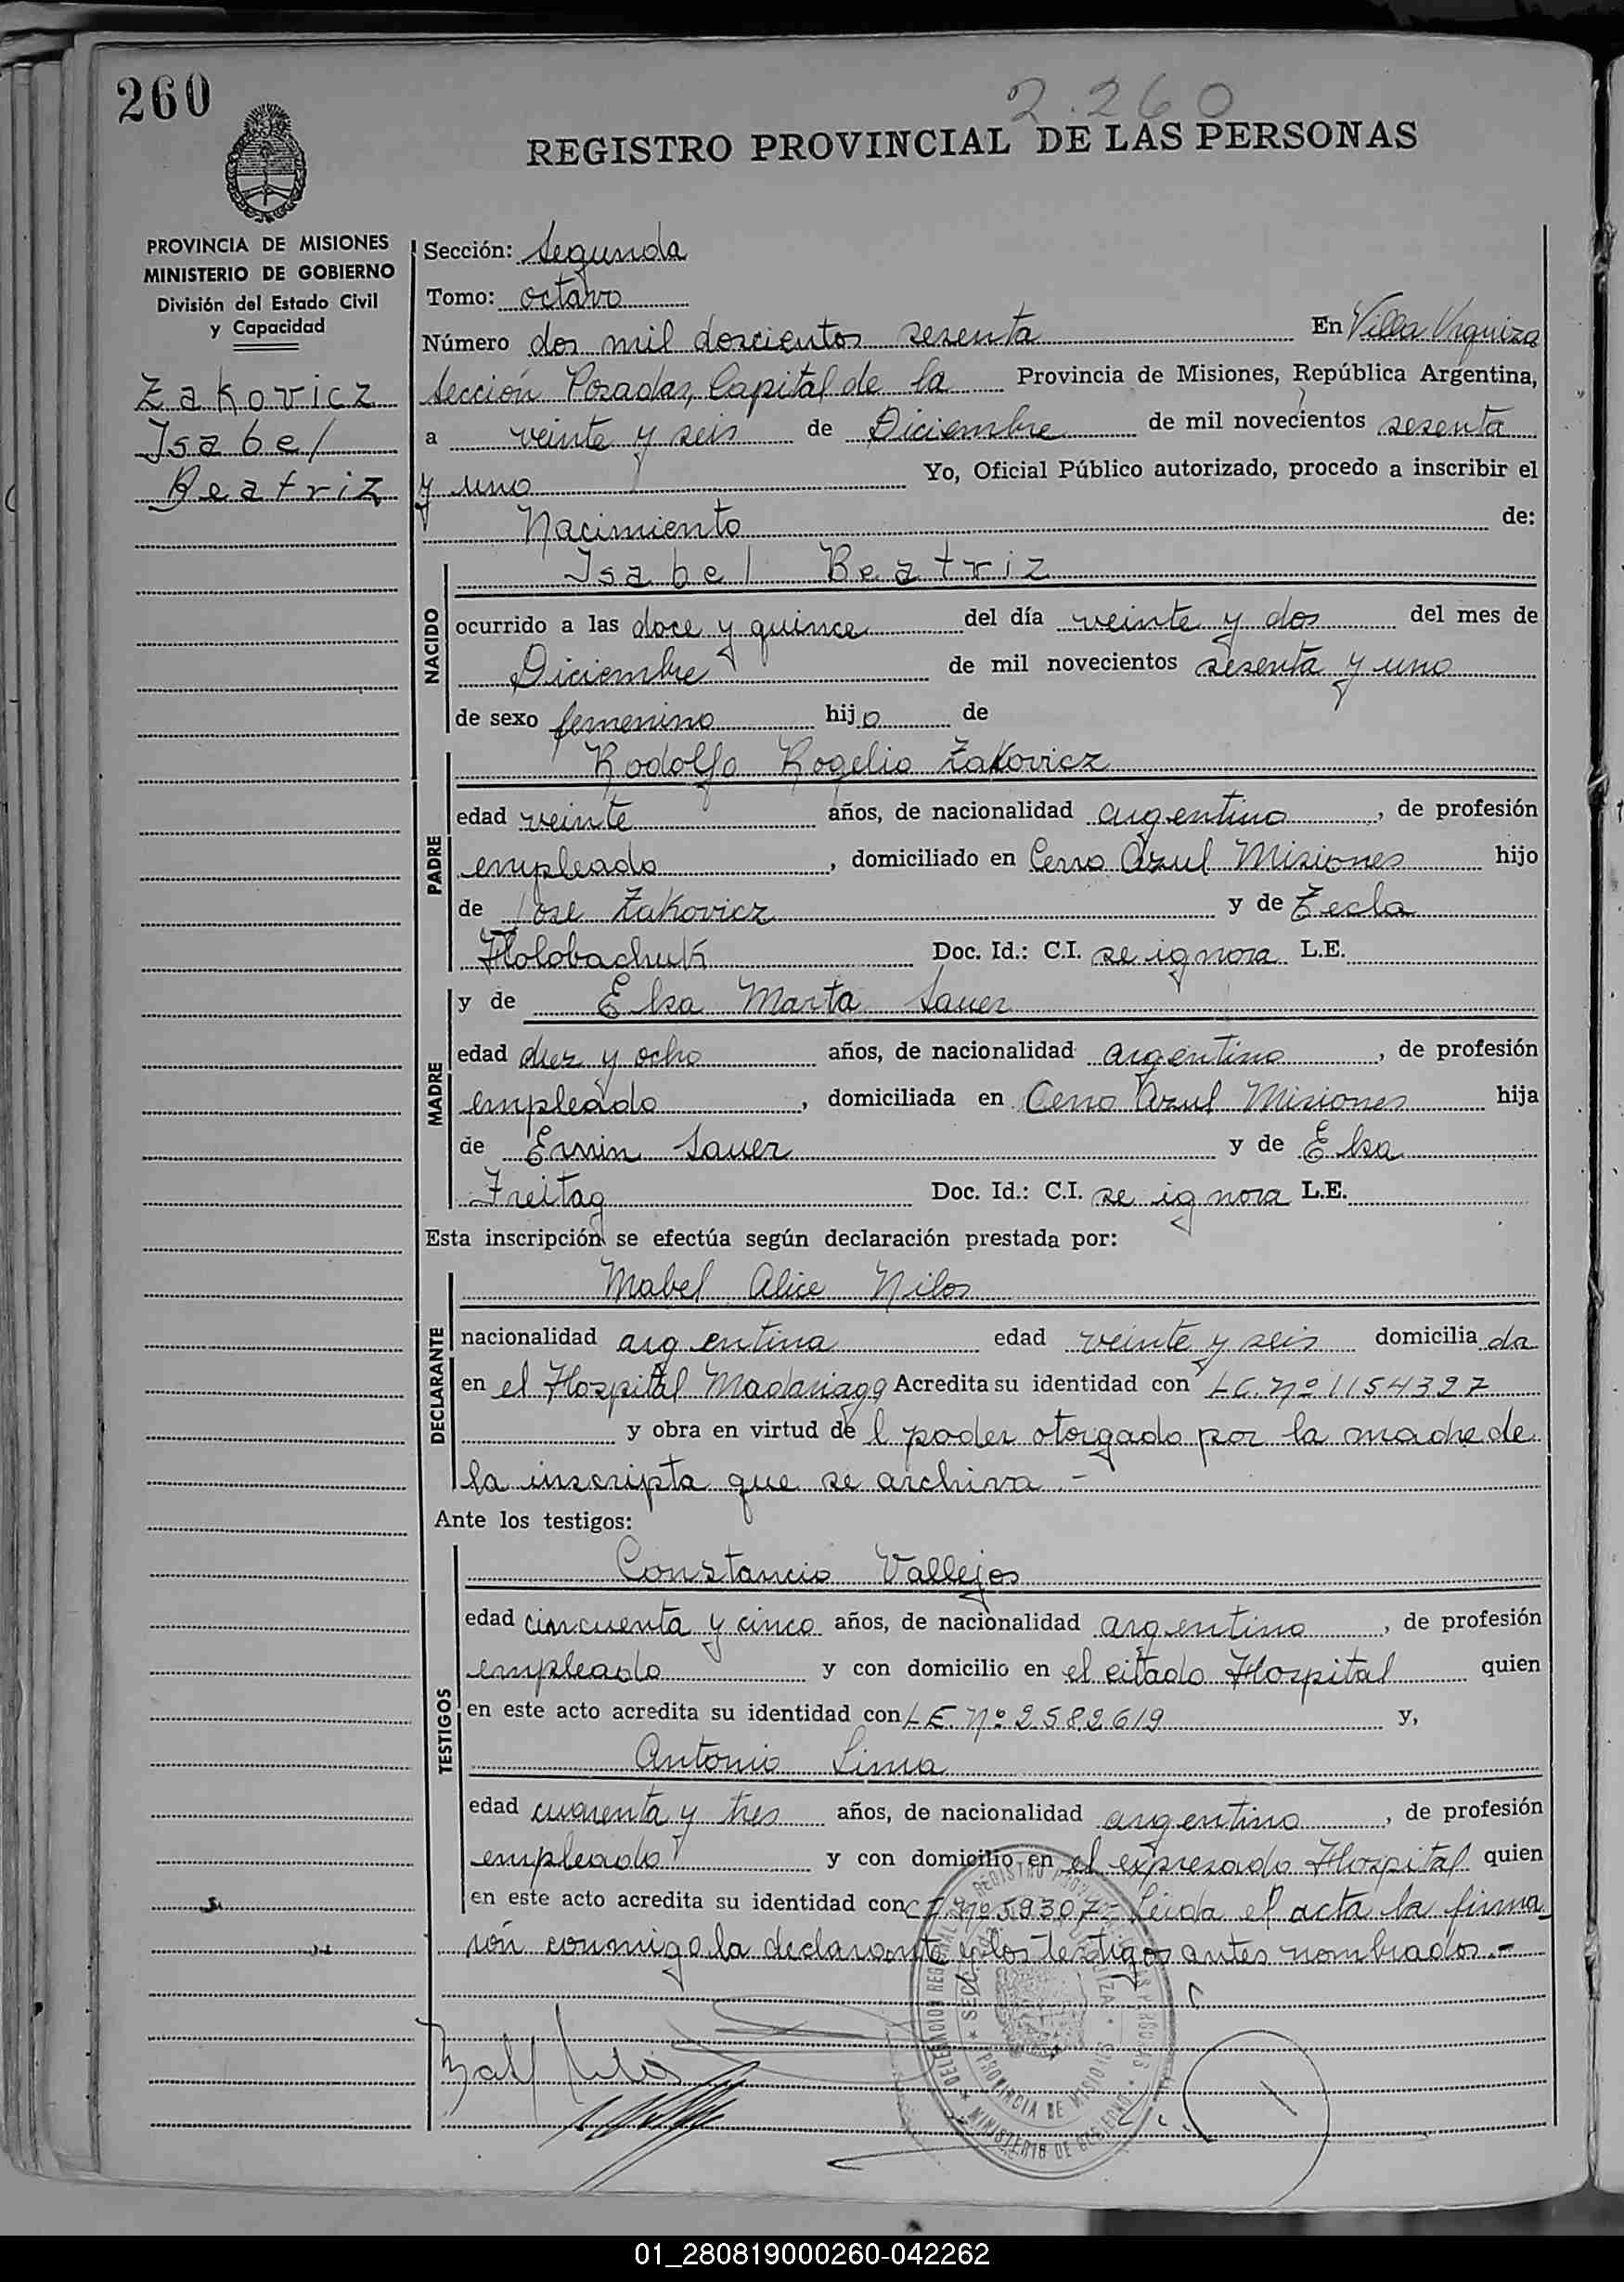 260
2.260
REGISTRO PROVINCIAL DE LAS PERSONAS
PROVINCIA DE MISIONES
MINISTERIO DE GOBIERNO
División del Estado Civil
y Capacidad
Zakovicz
Isabel
Beatriz
Sección: Segunda
Tomo: octavo
Número dos mil doscientos sesenta En Villa Urquiza
Sección Posadas, Capital de la Provincia de Misiones, República Argentina,
a veinte y seis de Diciembre de mil novecientos sesenta
y uno Yo, Oficial Público autorizado, procedo a inscribir el
Nacimiento de:
NACIDO
Isabel Beatriz
ocurrido a las doce y quince del día veinte y dos del mes de
Diciembre de mil novecientos sesenta y uno
de sexo femenino hijo de
PADRE
Rodolfo Rogelio Zakovicz
edad veinte años, de nacionalidad argentino, de profesión
empleado, domiciliado en Cerro Azul Misiones hijo
de Jose Zakovicz y de Tecla
Holobachuk Doc. Id.: C.I. se ignora L.E.
MADRE
y de Elsa Marta Sauer
edad diez y ocho años, de nacionalidad argentino, de profesión
empleado, domiciliada en Cerro Azul Misiones hija
de Erwin Sauer y de Elsa
Freitag Doc. Id.: C.I. se ignora L.E.
Esta inscripción se efectúa según declaración prestada por:
DECLARANTE
Mabel Alice Nilos
nacionalidad argentina edad veinte y seis domicilia da
en el Hospital Madariaga Acredita su identidad con L.C. Nº 1154327
y obra en virtud de l poder otorgado por la madre de
la inscripta que se archiva.-
Ante los testigos:
TESTIGOS
Constancio Vallejos
edad cincuenta y cinco años, de nacionalidad argentino, de profesión
empleado y con domicilio en el citado Hospital quien
en este acto acredita su identidad con L.E. Nº 2582619 y,
Antonio Lima
edad cuarenta y tres años, de nacionalidad argentino, de profesión
empleado y con domicilio en el expresado Hospital quien
en este acto acredita su identidad con C.I. Nº 59307- Leida el acta la firma
rón conmigo la declarante y los testigos antes nombrados.-
PROVINCIA DE MISIONES
MINISTERIO DE GOBIERNO
01_280819000260-042262